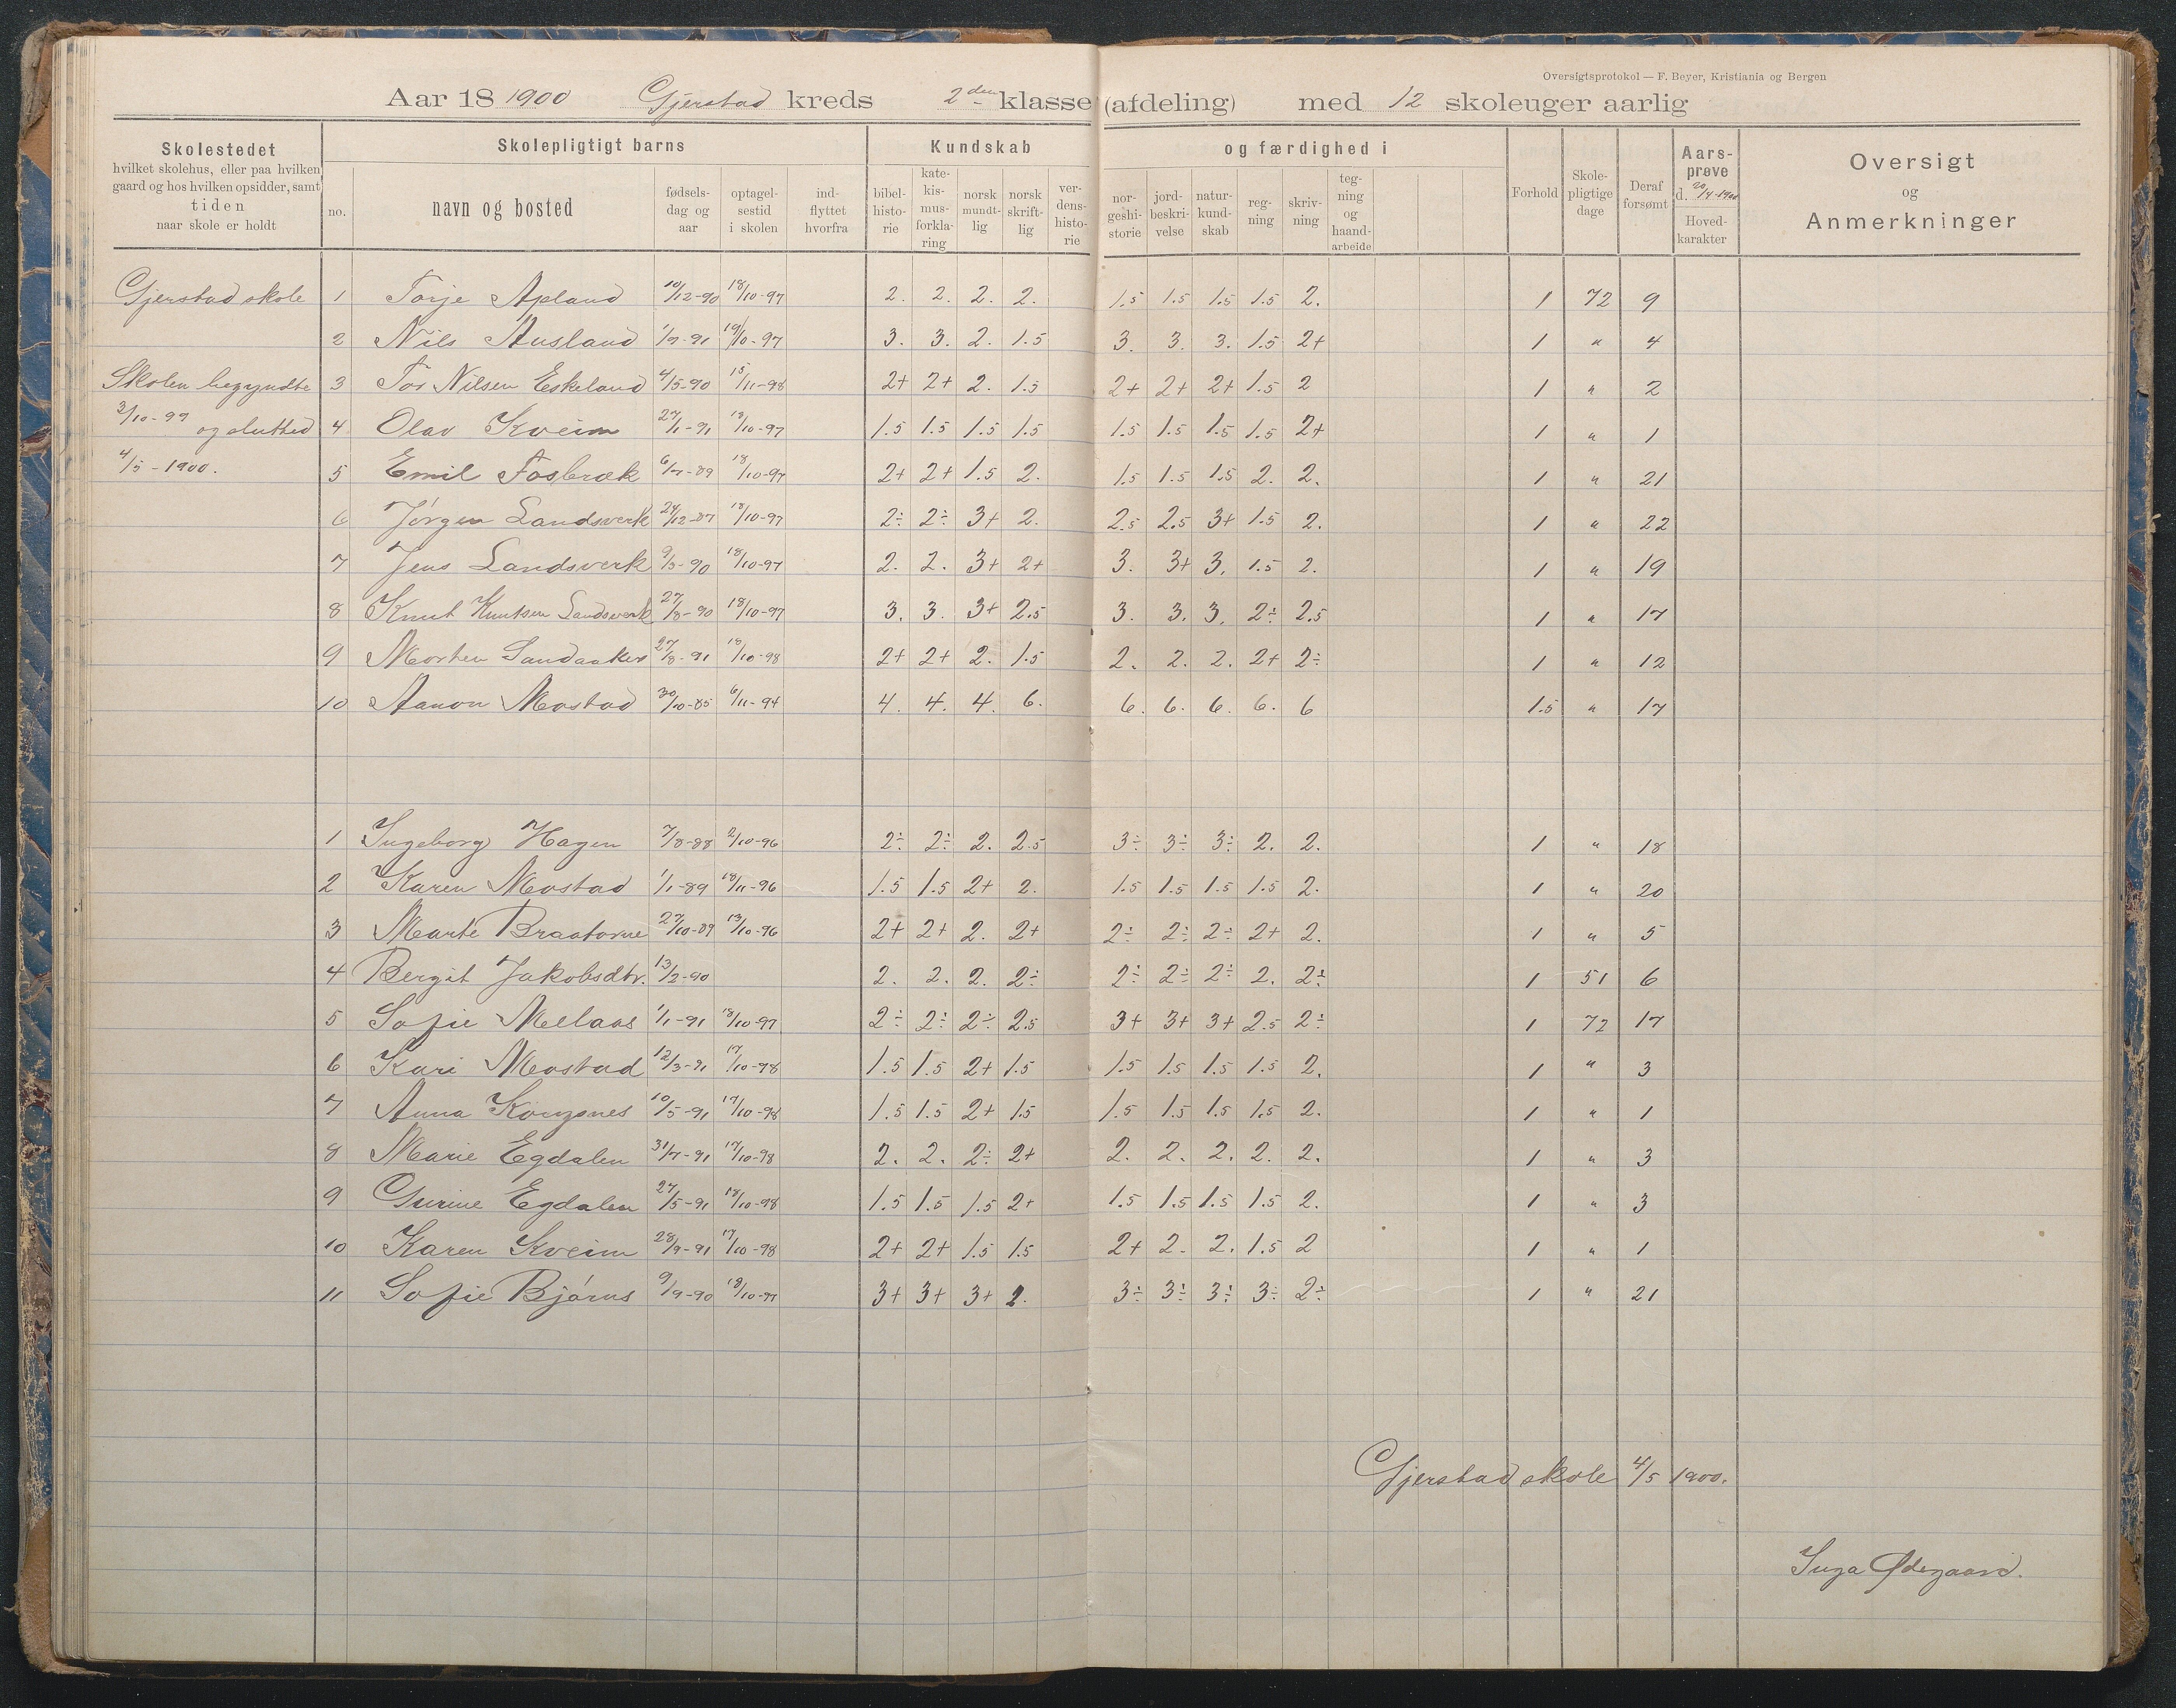 Oversigtsprotokol — F. Beyer, Kristiania og Bergen
Aar 18 1900 Gjerstad kreds 2den klasse (afdeling) med 12 skoleuger aarlig
Skolestedet
hvilket skolehus, eller paa hvilken
gaard og hos hvilken opsidder, samt
tiden
naar skole er holdt
Skolepligtigt barns
no.
navn og bosted
fødsels-
dag og
aar
optagel-
sestid
i skolen
ind-
flyttet
hvorfra
Kundskab
bibel-
histo-
rie
kate-
kis-
mus-
forkla-
ring
norsk
mundt-
lig
norsk
skrift-
lig
ver-
dens-
histo-
rie
og færdighed i
nor-
geshi-
storie
jord-
beskri-
velse
natur-
kund-
skab
reg-
ning
skriv-
ning
teg-
ning
og
haand-
arbeide
Forhold
Skole-
pligtige
dage
Deraf
forsømt
Aars-
prøve
d. 20/4-1900
Hoved-
karakter
Oversigt
og
Anmerkninger
Gjerstad skole 1 Torje Apland 10/12-90 18/10-97 2. 2. 2. 2. 1.5 1.5 1.5 1.5 2. 1 72 9
2 Nils Ausland 1/7-91 19/10-97 3. 3. 2. 1.5 3. 3. 3. 1.5 2+ 1 " 4
Skolen begyndte 3 Tor Nilsen Eskeland 4/5-90 15/11-98 2+ 2+ 2. 1.5 2+ 2+ 2+ 1.5 2 1 " 2
3/10-99 og slutted 4 Olav Kveim 27/1-91 18/10-97 1.5 1.5 1.5 1.5 1.5 1.5 1.5 1.5 2+ 1 " 1
4/5-1900. 5 Emil Fosbræk 6/7-89 18/10-97 2+ 2+ 1.5 2. 1.5 1.5 1.5 2. 2. 1 " 21
6 Jørgen Landsverk 24/12-87 18/10-97 2÷ 2÷ 3+ 2. 2.5 2.5 3+ 1.5 2. 1 " 22
7 Jens Landsverk 9/3-90 18/10-97 2. 2. 3+ 2+ 3. 3+ 3. 1.5 2. 1 " 19
8 Knut Knutsen Landsverk 27/8-90 18/10-97 3. 3. 3+ 2.5 3. 3. 3. 2÷ 2.5 1 " 17
9 Morten Sandaaker 27/8-91 18/10-98 2+ 2+ 2. 1.5 2. 2. 2. 2+ 2÷ 1 " 12
10 Aanon Mostad 30/10-85 6/11-94 4. 4. 4. 6. 6. 6. 6. 6. 6 1.5 " 17
1 Ingeborg Hagen 7/8-88 2/10-96 2÷ 2÷ 2. 2.5 3÷ 3÷ 3÷ 2. 2. 1 " 18
2 Karen Mostad 1/1-89 18/11-96 1.5 1.5 2+ 2. 1.5 1.5 1.5 1.5 2. 1 " 20
3 Marte 27/10-89 13/10-96 2+ 2+ 2. 2+ 2÷ 2÷ 2÷ 2+ 2. 1 " 5
4 Bergit Jakobsdtr. 13/2-90 2. 2. 2. 2÷ 2÷ 2÷ 2÷ 2. 2÷ 1 51 6
5 Sofie Mellaas 1/1-91 18/10-97 2÷ 2÷ 2÷ 2.5 3+ 3+ 3+ 2.5 2÷ 1 72 17
6 Kari Mostad 12/3-91 17/10-98 1.5 1.5 2+ 1.5 1.5 1.5 1.5 1.5 2. 1 " 3
7 Anna 10/5-91 17/10-98 1.5 1.5 2+ 1.5 1.5 1.5 1.5 1.5 2. 1 " 1
8 Marie Egdalen 31/7-91 17/10-98 2. 2. 2÷ 2+ 2. 2. 2. 2. 2. 1 " 3
9 Gurine Egdalen 27/5-91 18/10-98 1.5 1.5 1.5 2+ 1.5 1.5 1.5 1.5 2. 1 " 3
10 Karen Kveim 28/9-91 17/10-98 2+ 2+ 1.5 1.5 2+ 2. 2. 1.5 2 1 " 1
11 Sofie Bjørns 9/9-90 18/10-97 3+ 3+ 3+ 2. 3÷ 3÷ 3÷ 3÷ 2÷ 1 " 21
Gjerstad skole 4/5 1900.
Inga Ødegaard.